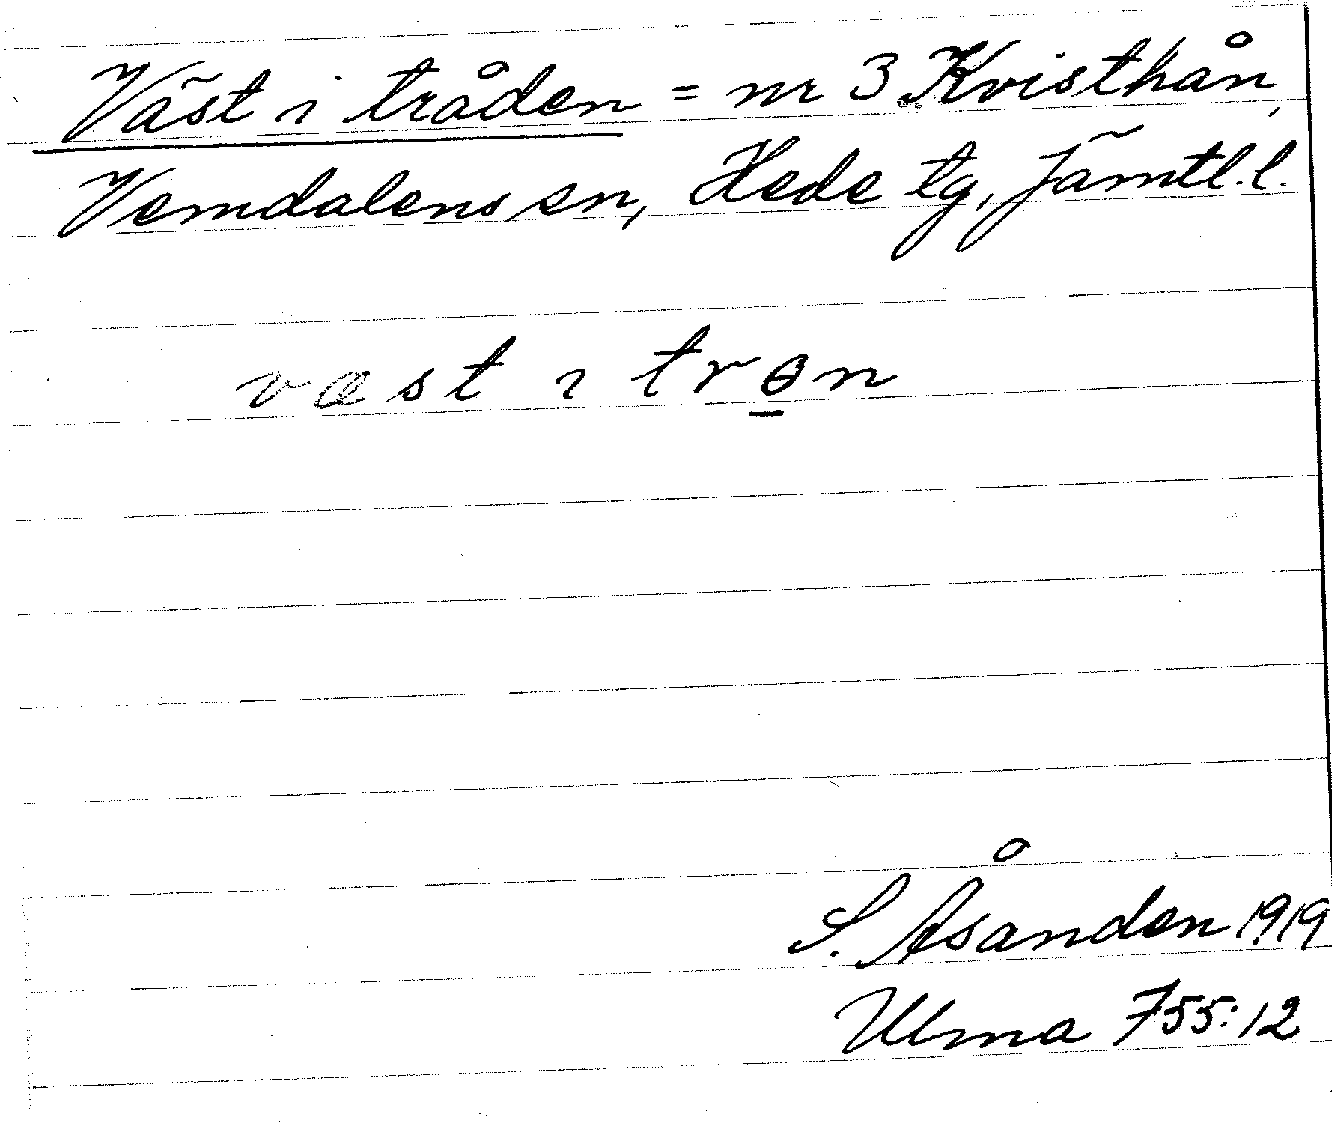 Väst i tråden = nr 3 Kvisthån,
Vemdalens sn, Hede tg, Jämtl. l.
væst ɿ trɵ̠n
S. Åsanden 1919
Ulma 755:12